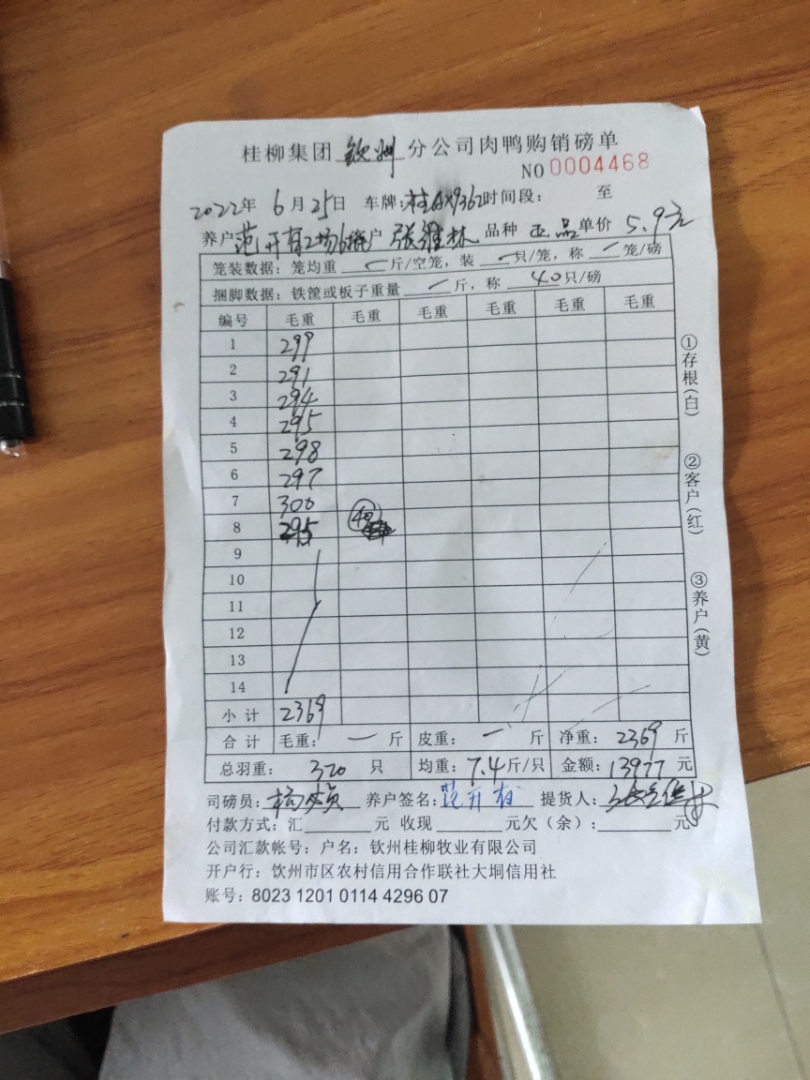 桂柳集团 钦州 分公司肉鸭购销磅单
NO 0004468
2022年 6月25日 车牌:桂AX9362时间段: 至
养户 范开有2场6栋 客户 张维林 品种 正品 单价 5.9元
笼装数据:笼均重 斤/空笼,装 只/笼,称 笼/磅
捆脚数据:铁筐或板子重量 斤,称 40 只/磅
编号 毛重 毛重 毛重 毛重 毛重 毛重
1 299
2 291
3 294
4 295
5 298
6 297
7 300
8 295 40
9
10
11
12
13
14
小计 2369
合计 毛重: 斤 皮重: 斤 净重: 2369 斤
总羽重: 320 只 均重: 7.4斤/只 金额: 13977 元
司磅员: 养户签名: 范开有 提货人:
付款方式:汇 元 收现 元欠(余): 元
公司汇款帐号:户名:钦州桂柳牧业有限公司
开户行:钦州市区农村信用合作联社大垌信用社
账号:8023 1201 0114 4296 07
①存根(白)
②客户(红)
③养户(黄)